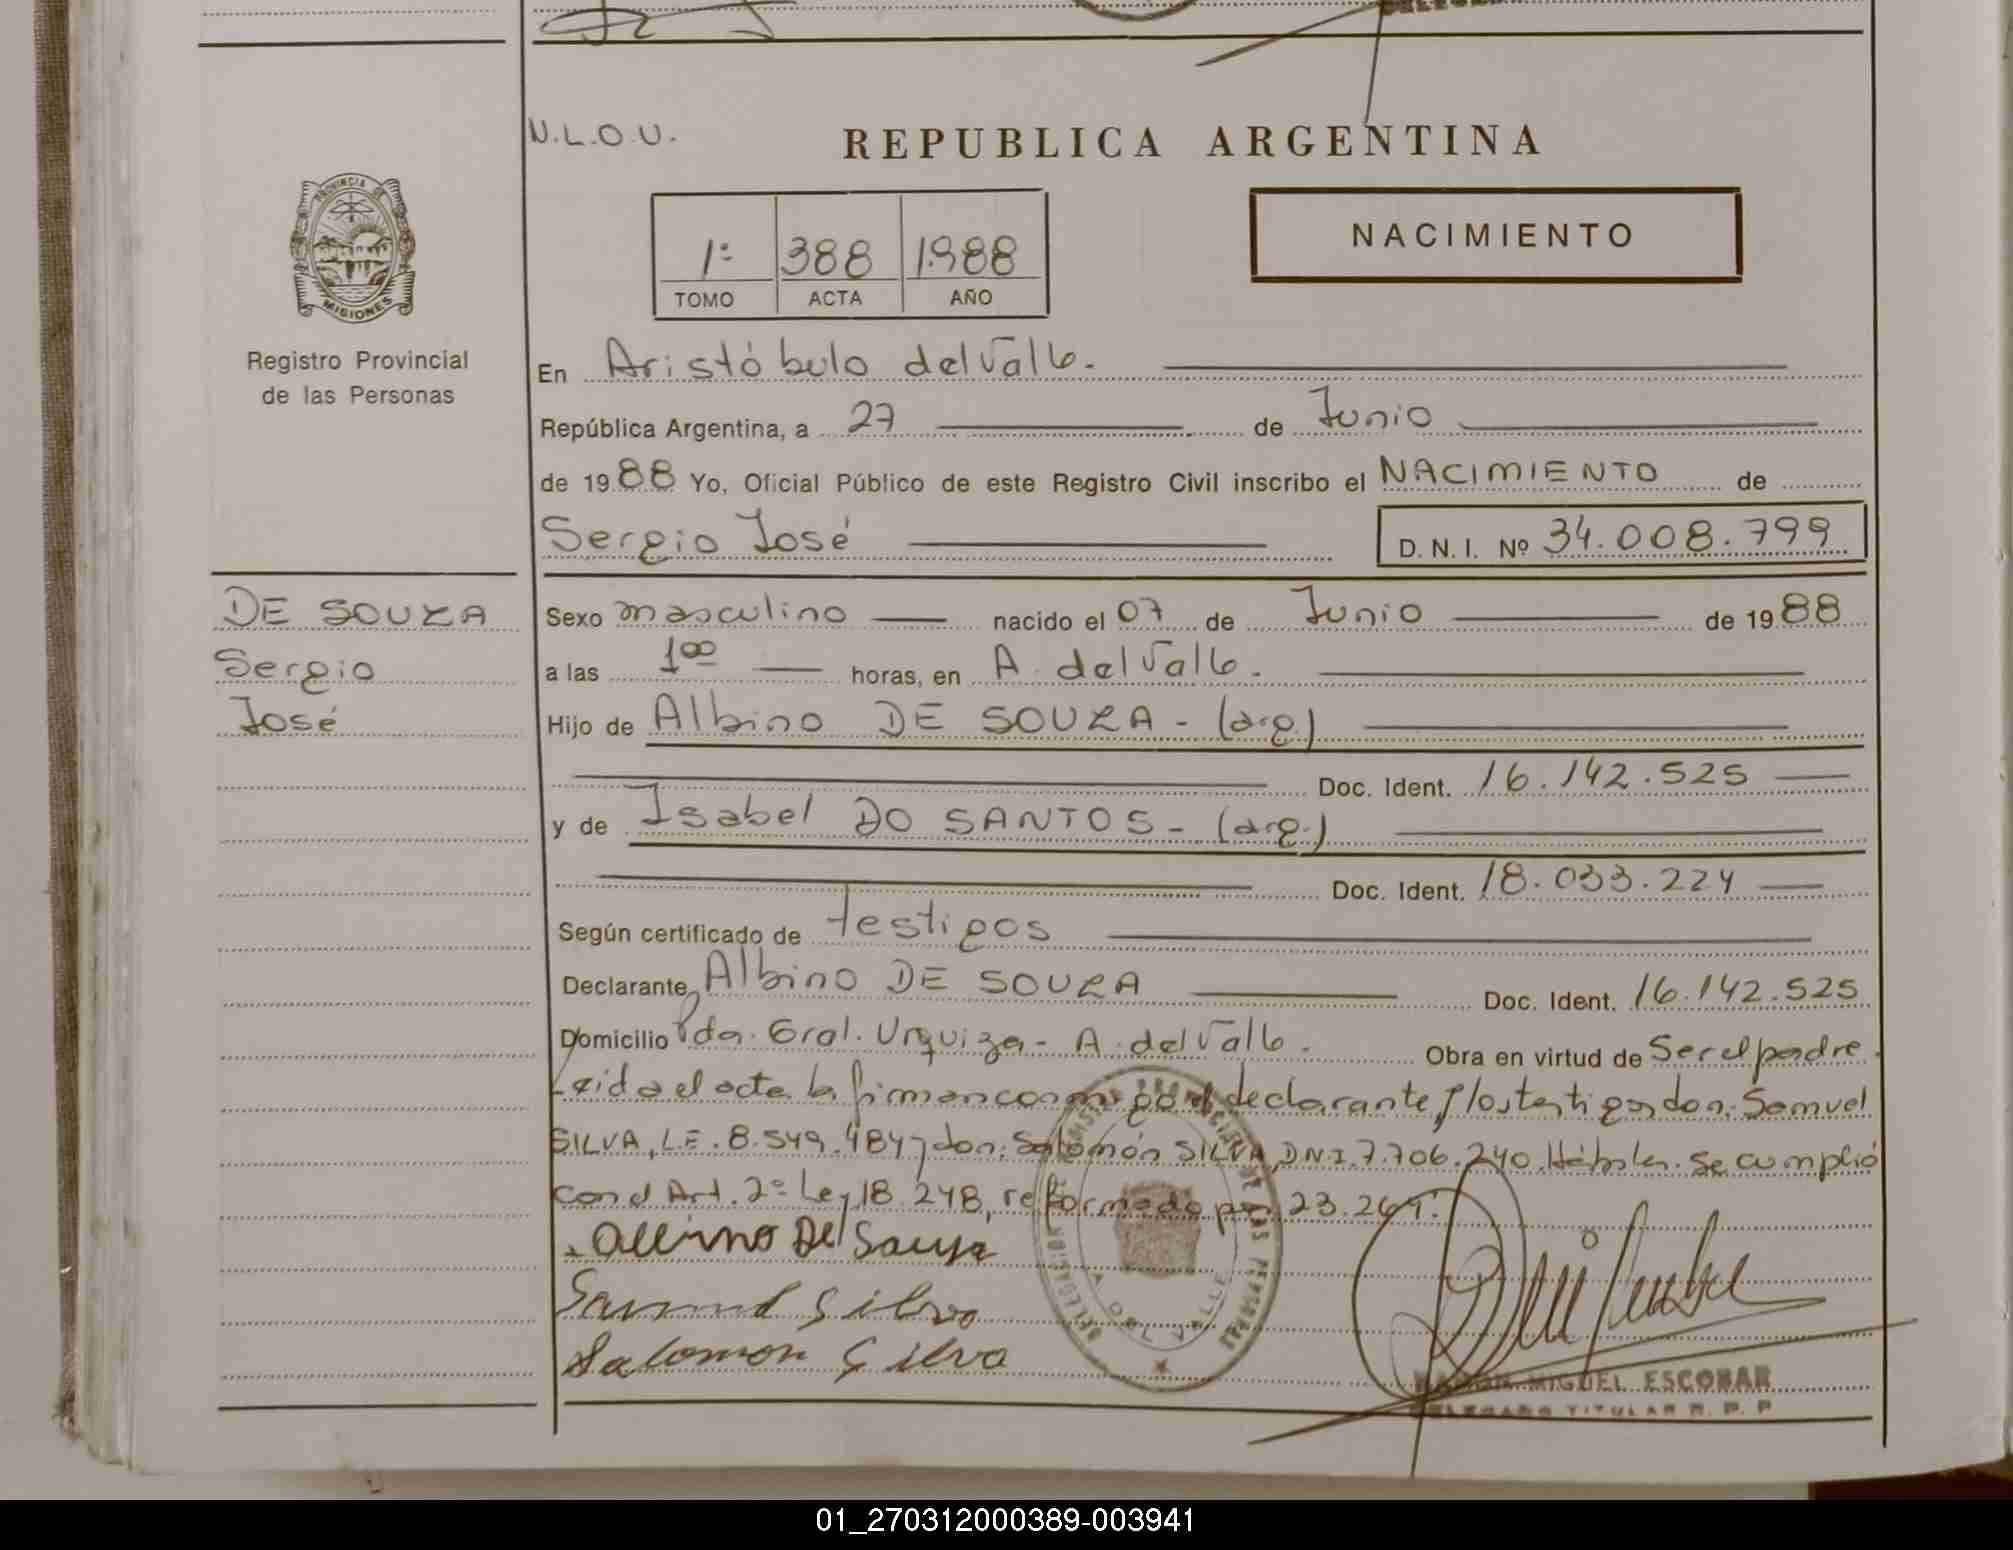 N.L.O.U.
REPUBLICA ARGENTINA
PROVINCIA DE
MISIONES
1º 388 1988
TOMO ACTA AÑO
NACIMIENTO
Registro Provincial
de las Personas
En Aristóbulo del Valle.
República Argentina, a 27 de Junio
de 1988 Yo, Oficial Público de este Registro Civil inscribo el NACIMIENTO de
Sergio José D.N.I. Nº 34.008.799
DE SOUZA
Sergio
José
Sexo masculino nacido el 07 de Junio de 1988
a las 1⁰⁰ horas, en A. del Valle.
Hijo de Albino DE SOUZA - (arg.)
Doc. Ident. 16.142.525
y de Isabel DO SANTOS - (arg.)
Doc. Ident. 18.033.224
Según certificado de testigos
Declarante Albino DE SOUZA Doc. Ident. 16.142.525
Domicilio Pda. Gral. Urquiza - A. del Valle. Obra en virtud de Ser el padre.
Leida el acta la firman conmigo el declarante y los testigos don: Samuel
SILVA, L.E. 8.549.484 y don: Salomón SILVA, DNI. 7.706.240. Hábiles. Se cumplió
con el Art. 2º Ley 18.248, reformado por 23.264.
Albino De Souza
Samuel Silva
Salomon Silva
DELEGACION DE LAS PERSONAS
A. DEL VALLE
RAMON MIGUEL ESCOBAR
DELEGADO TITULAR R. P. P
01_270312000389-003941